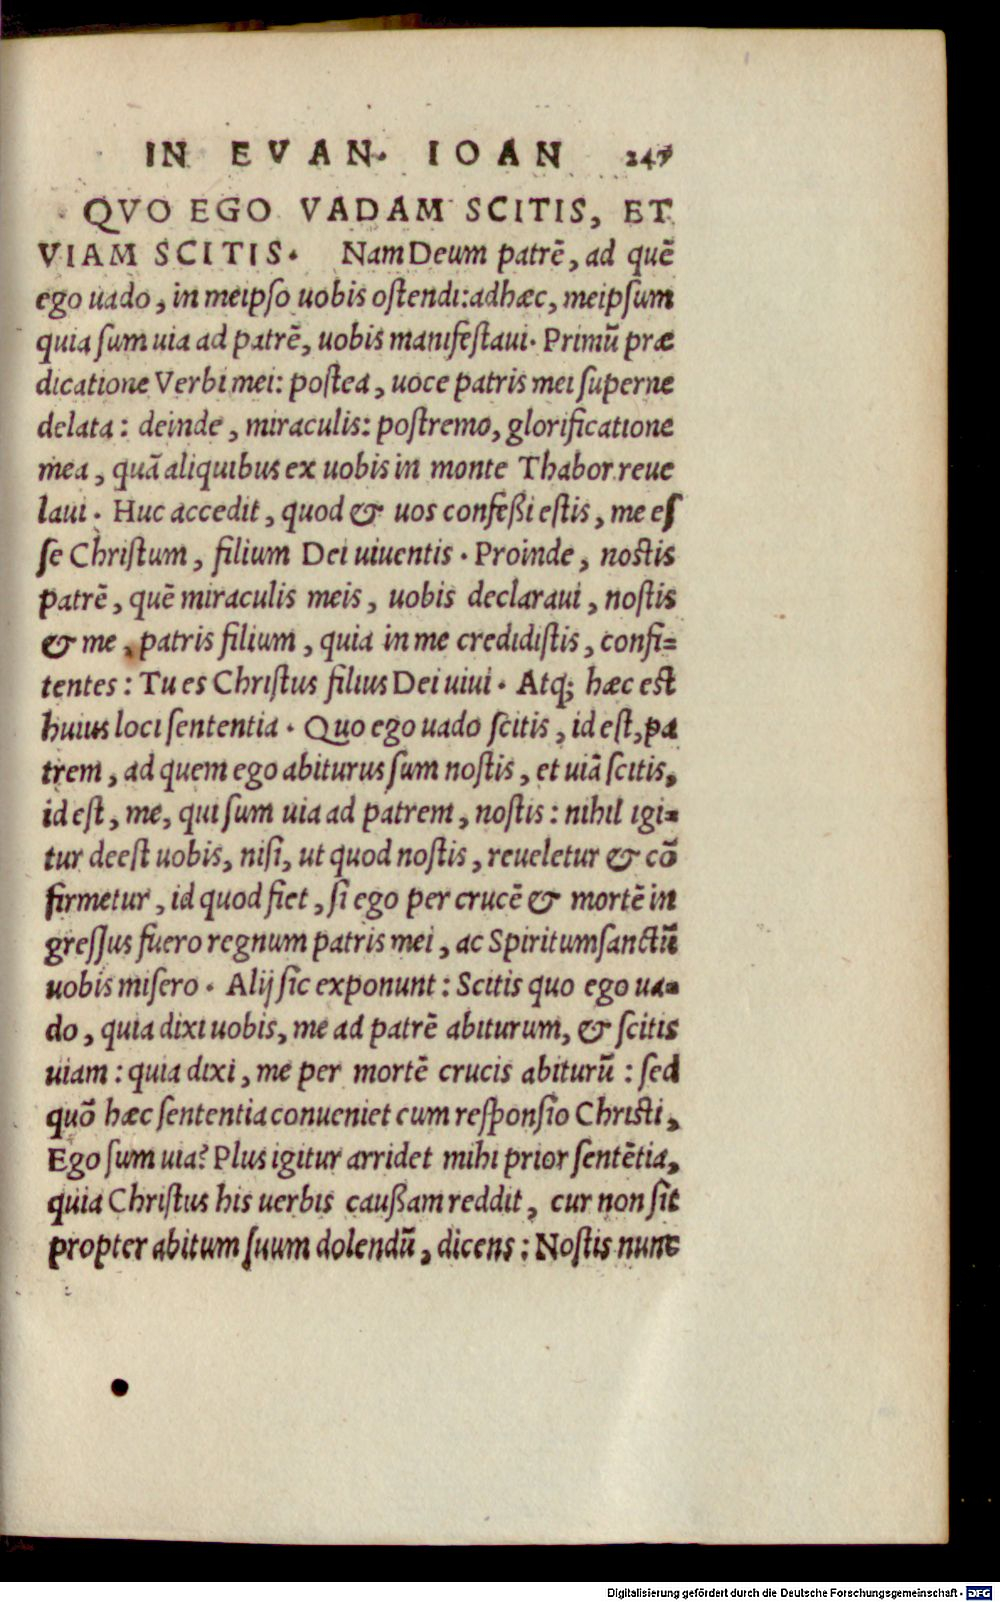 IN EVAN. IOAN 247
QVO EGO VADAM SCITIS, ET
VIAM SCITIS. Nam Deum patrē, ad quē
ego uado, in meipſo uobis oſtendi: adhæc, meipſum
quia ſum uia ad patrē, uobis manifeſtaui. Primū præ
dicatione Verbi mei: poſtea, uoce patris mei ſuperne
delata: deinde, miraculis: poſtremo, glorificatione
mea, quā aliquibus ex uobis in monte Thabor reue
laui. Huc accedit, quod & uos confeßi eſtis, me eſ
ſe Chriſtum, filium Dei uiuentis. Proinde, noſtis
patrē, quē miraculis meis, uobis declaraui, noſtis
& me, patris filium, quia in me credidiſtis, confi=
tentes: Tu es Chriſtus filius Dei uiui. Atq; hæc est
huius loci ſententia. Quo ego uado ſcitis, id eſt, pa
trem, ad quem ego abiturus ſum noſtis, et uiā ſcitis,
id eſt, me, qui ſum uia ad patrem, noſtis: nihil igi=
tur deeſt uobis, niſi, ut quod noſtis, reueletur & cō
firmetur, id quod fiet, ſi ego per crucē & mortē in
greſſus fuero regnum patris mei, ac Spiritumſanctū
uobis miſero. Alij ſic exponunt: Scitis quo ego ua=
do, quia dixi uobis, me ad patrē abiturum, & ſcitis
uiam: quia dixi, me per mortē crucis abiturū: ſed
quō hæc ſententia conueniet cum reſponſio Chriſti,
Ego ſum uia? Plus igitur arridet mihi prior ſentētia,
quia Chriſtus his uerbis cauſſam reddit, cur non ſit
propter abitum ſuum dolendū, dicens: Noſtis nunc
Digitalisierung gefördert durch die Deutsche Forschungsgemeinschaft - DFG